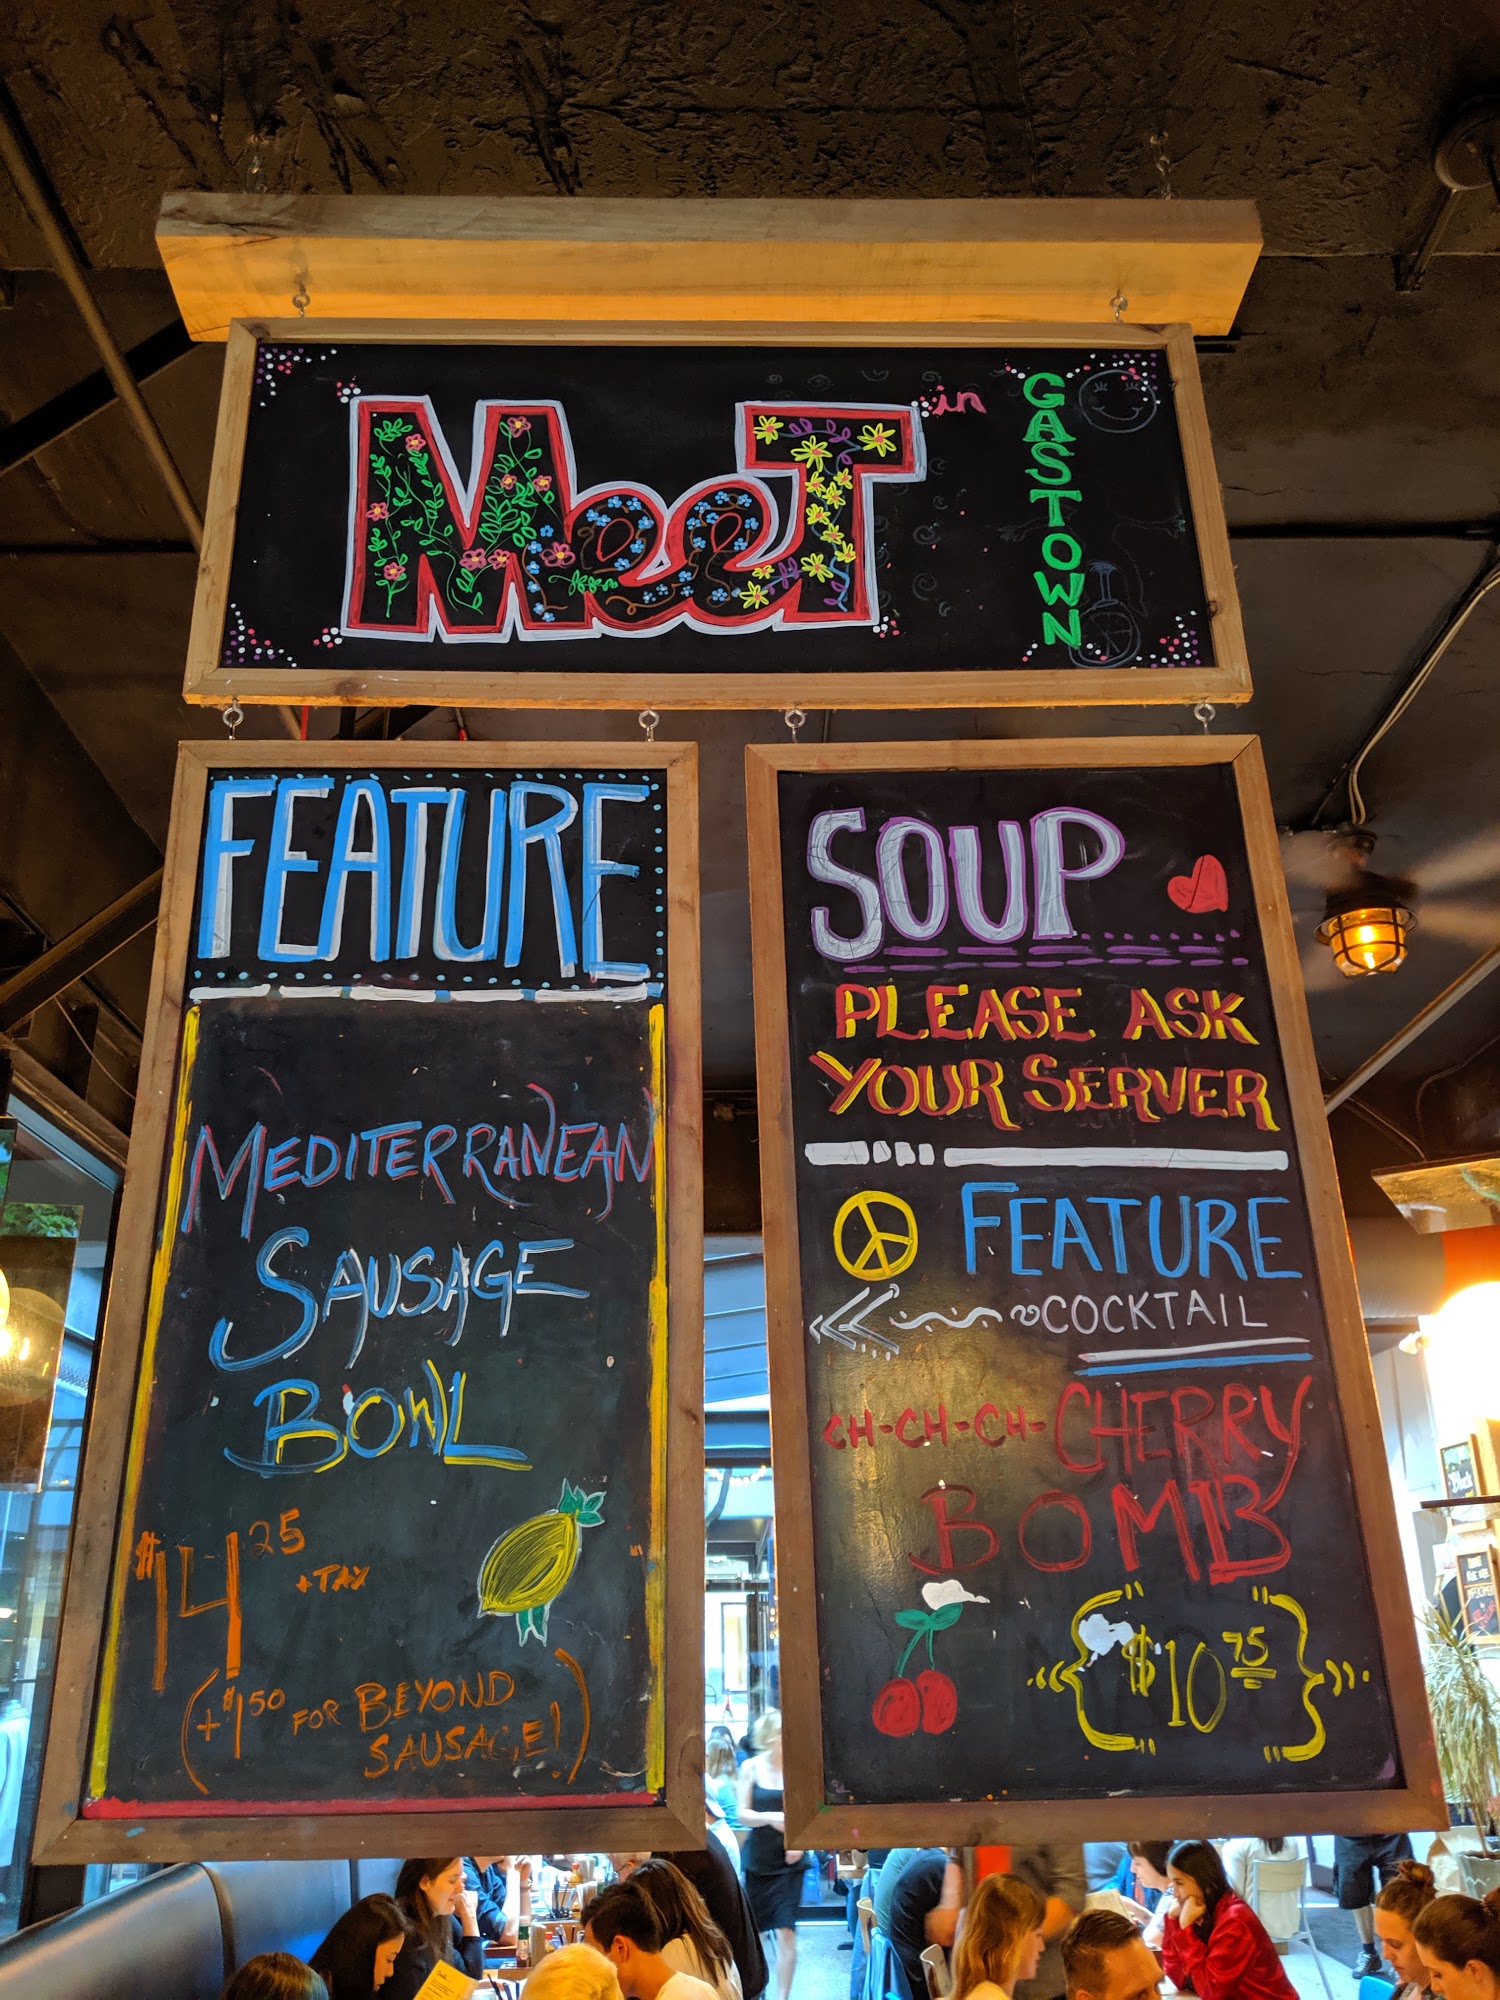 MeeT in
GASTOWN
FEATURE
MEDITERRANEAN
SAUSAGE
BOWL
$14 25 +TAX
(+$1 50 FOR BEYOND
SAUSAGE!)
SOUP
PLEASE ASK
YOUR SERVER
FEATURE
COCKTAIL
CH-CH-CH-CHERRY
BOMB
$10 75